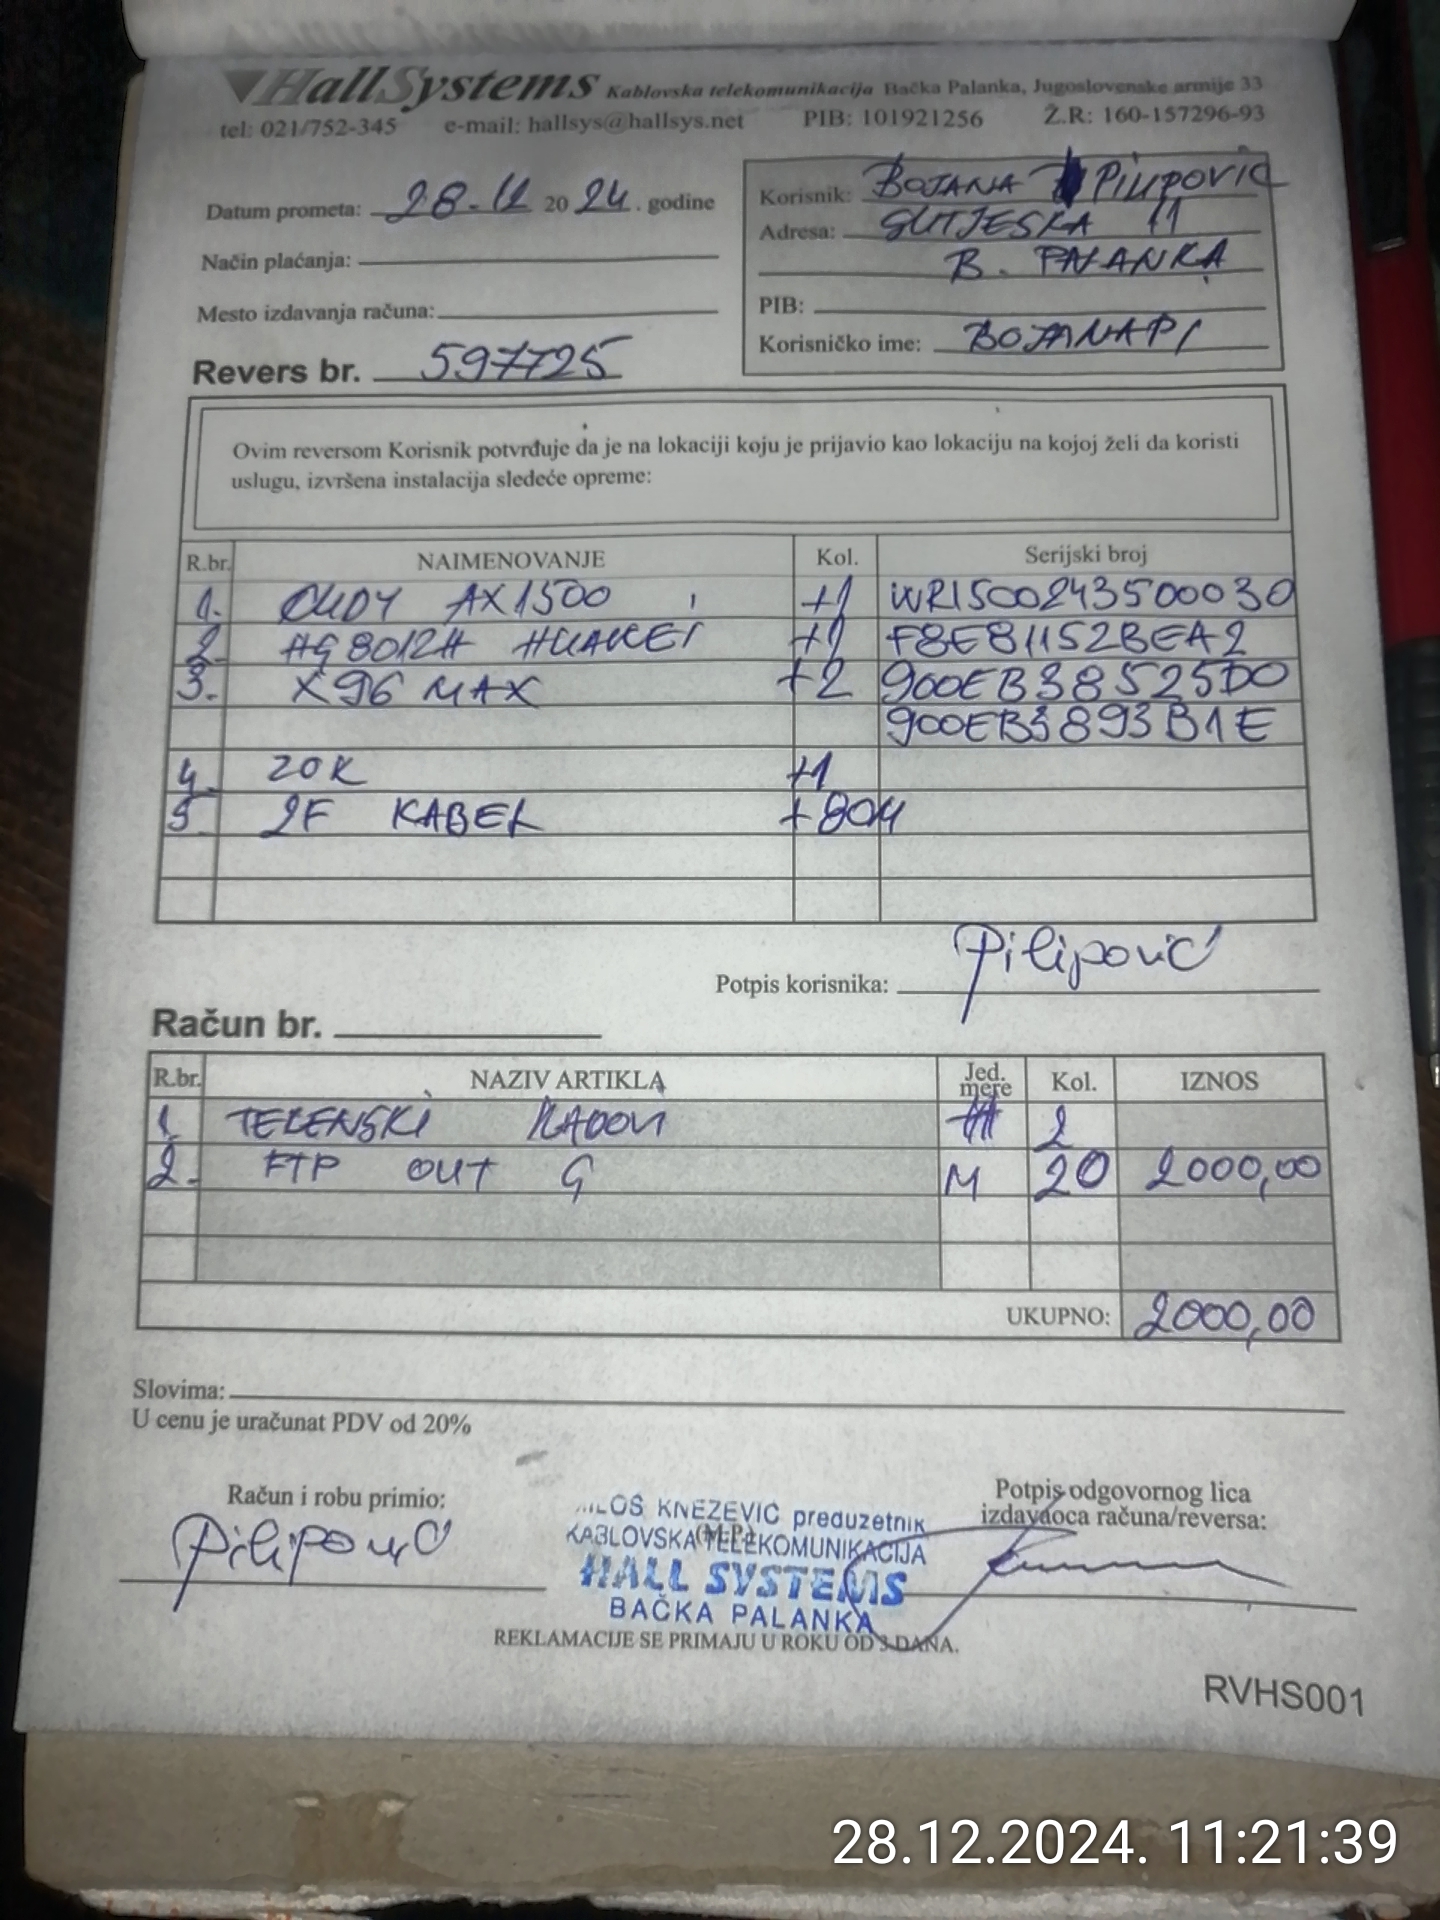 HallSystems Kablovska telekomunikacija Bačka Palanka, Jugoslovenske armije 33
tel: 021/752-345 e-mail: hallsys@hallsys.net PIB: 101921256 Ž.R: 160-157296-93
Datum prometa: 28.12 2024. godine
Način plaćanja:
Mesto izdavanja računa:
Revers br. 597725
Korisnik: BOJANA PILIPOVIĆ
Adresa: SUTJESKA 11
B. PALANKA
PIB:
Korisničko ime: BOJANAPI
Ovim reversom Korisnik potvrđuje da je na lokaciji koju je prijavio kao lokaciju na kojoj želi da koristi
uslugu, izvršena instalacija sledeće opreme:
R.br. NAIMENOVANJE Kol. Serijski broj
1. CUDY AX1500 +1 WR1500243500030
2. HG8012H HUAWEI +1 F8E81152BEA2
3. X96 MAX +2 900EB38525D0
900EB3893B1E
4. ZOK +1
5 2F KABEL +80M
Potpis korisnika: Pilipović
Račun br.
R.br. NAZIV ARTIKLA Jed. mere Kol. IZNOS
1. TERENSKI RADOVI H 2
2. FTP OUT G M 20 2000,00
UKUPNO: 2000,00
Slovima:
U cenu je uračunat PDV od 20%
Račun i robu primio:
Pilipović
MILOŠ KNEŽEVIĆ preduzetnik
(M.P.)
KABLOVSKA TELEKOMUNIKACIJA
HALL SYSTEMS
BAČKA PALANKA
Potpis odgovornog lica
izdavaoca računa/reversa:
REKLAMACIJE SE PRIMAJU U ROKU OD 3 DANA.
RVHS001
28.12.2024. 11:21:39